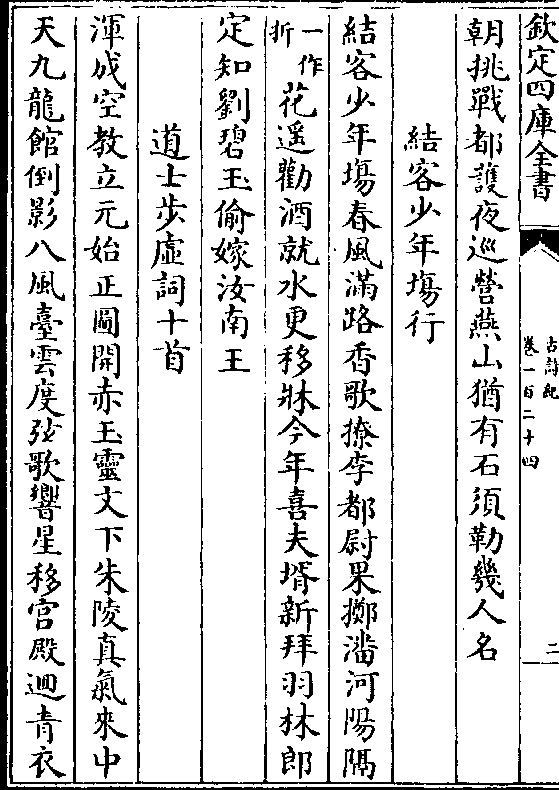 欽定四庫全書
古詩紀
卷一百二十四
二
朝挑戰都護夜巡營燕山猶有石須勒幾人名
結客少年塲行
結客少年塲春風滿路香歌撩李都尉果擲潘河陽隔
一作折花遥勸酒就水更移牀今年喜夫壻新拜羽林郎
定知劉碧玉偷嫁汝南王
道士步虛詞十首
渾成空教立元始正圖開赤玉靈文下朱陵真氣來中
天九龍館倒影八風臺雲度弦歌響星移宫殿迴青衣